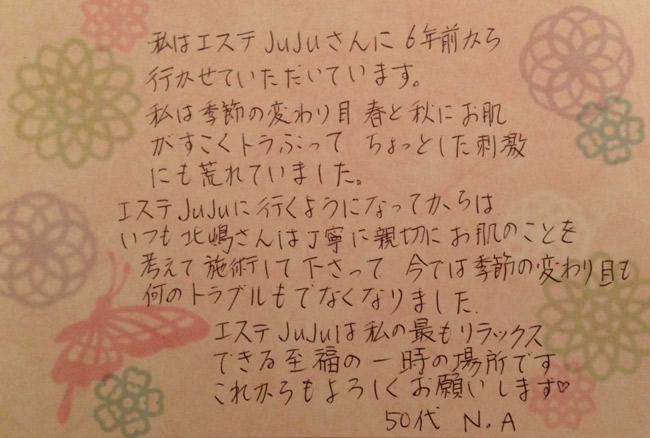 私はエステJuJuさんに6年前から
行かせていただいています。
私は季節の変わり目 春と秋にお肌
がすごくトラぶって ちょっとした刺激
にも荒れていました。
エステJuJuに行くようになってからは
いつも北嶋さんは丁寧に親切にお肌のことを
考えて施術して下さって 今では季節の変わり目も
何のトラブルもでなくなりました.
エステJuJuは私の最もリラックス
できる至福の一時の場所です
これからもよろしくお願いします♡
50代 N.A